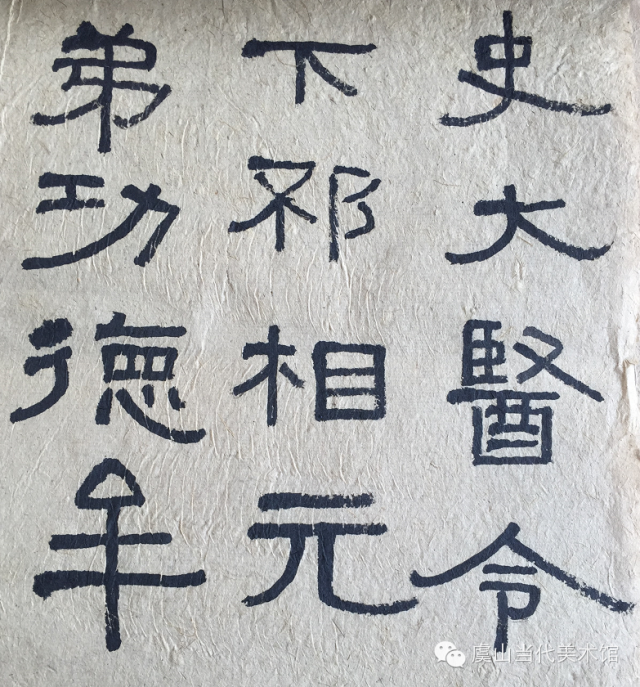 史大醫令
下邳相元
弟功德牟
虞山当代美术馆